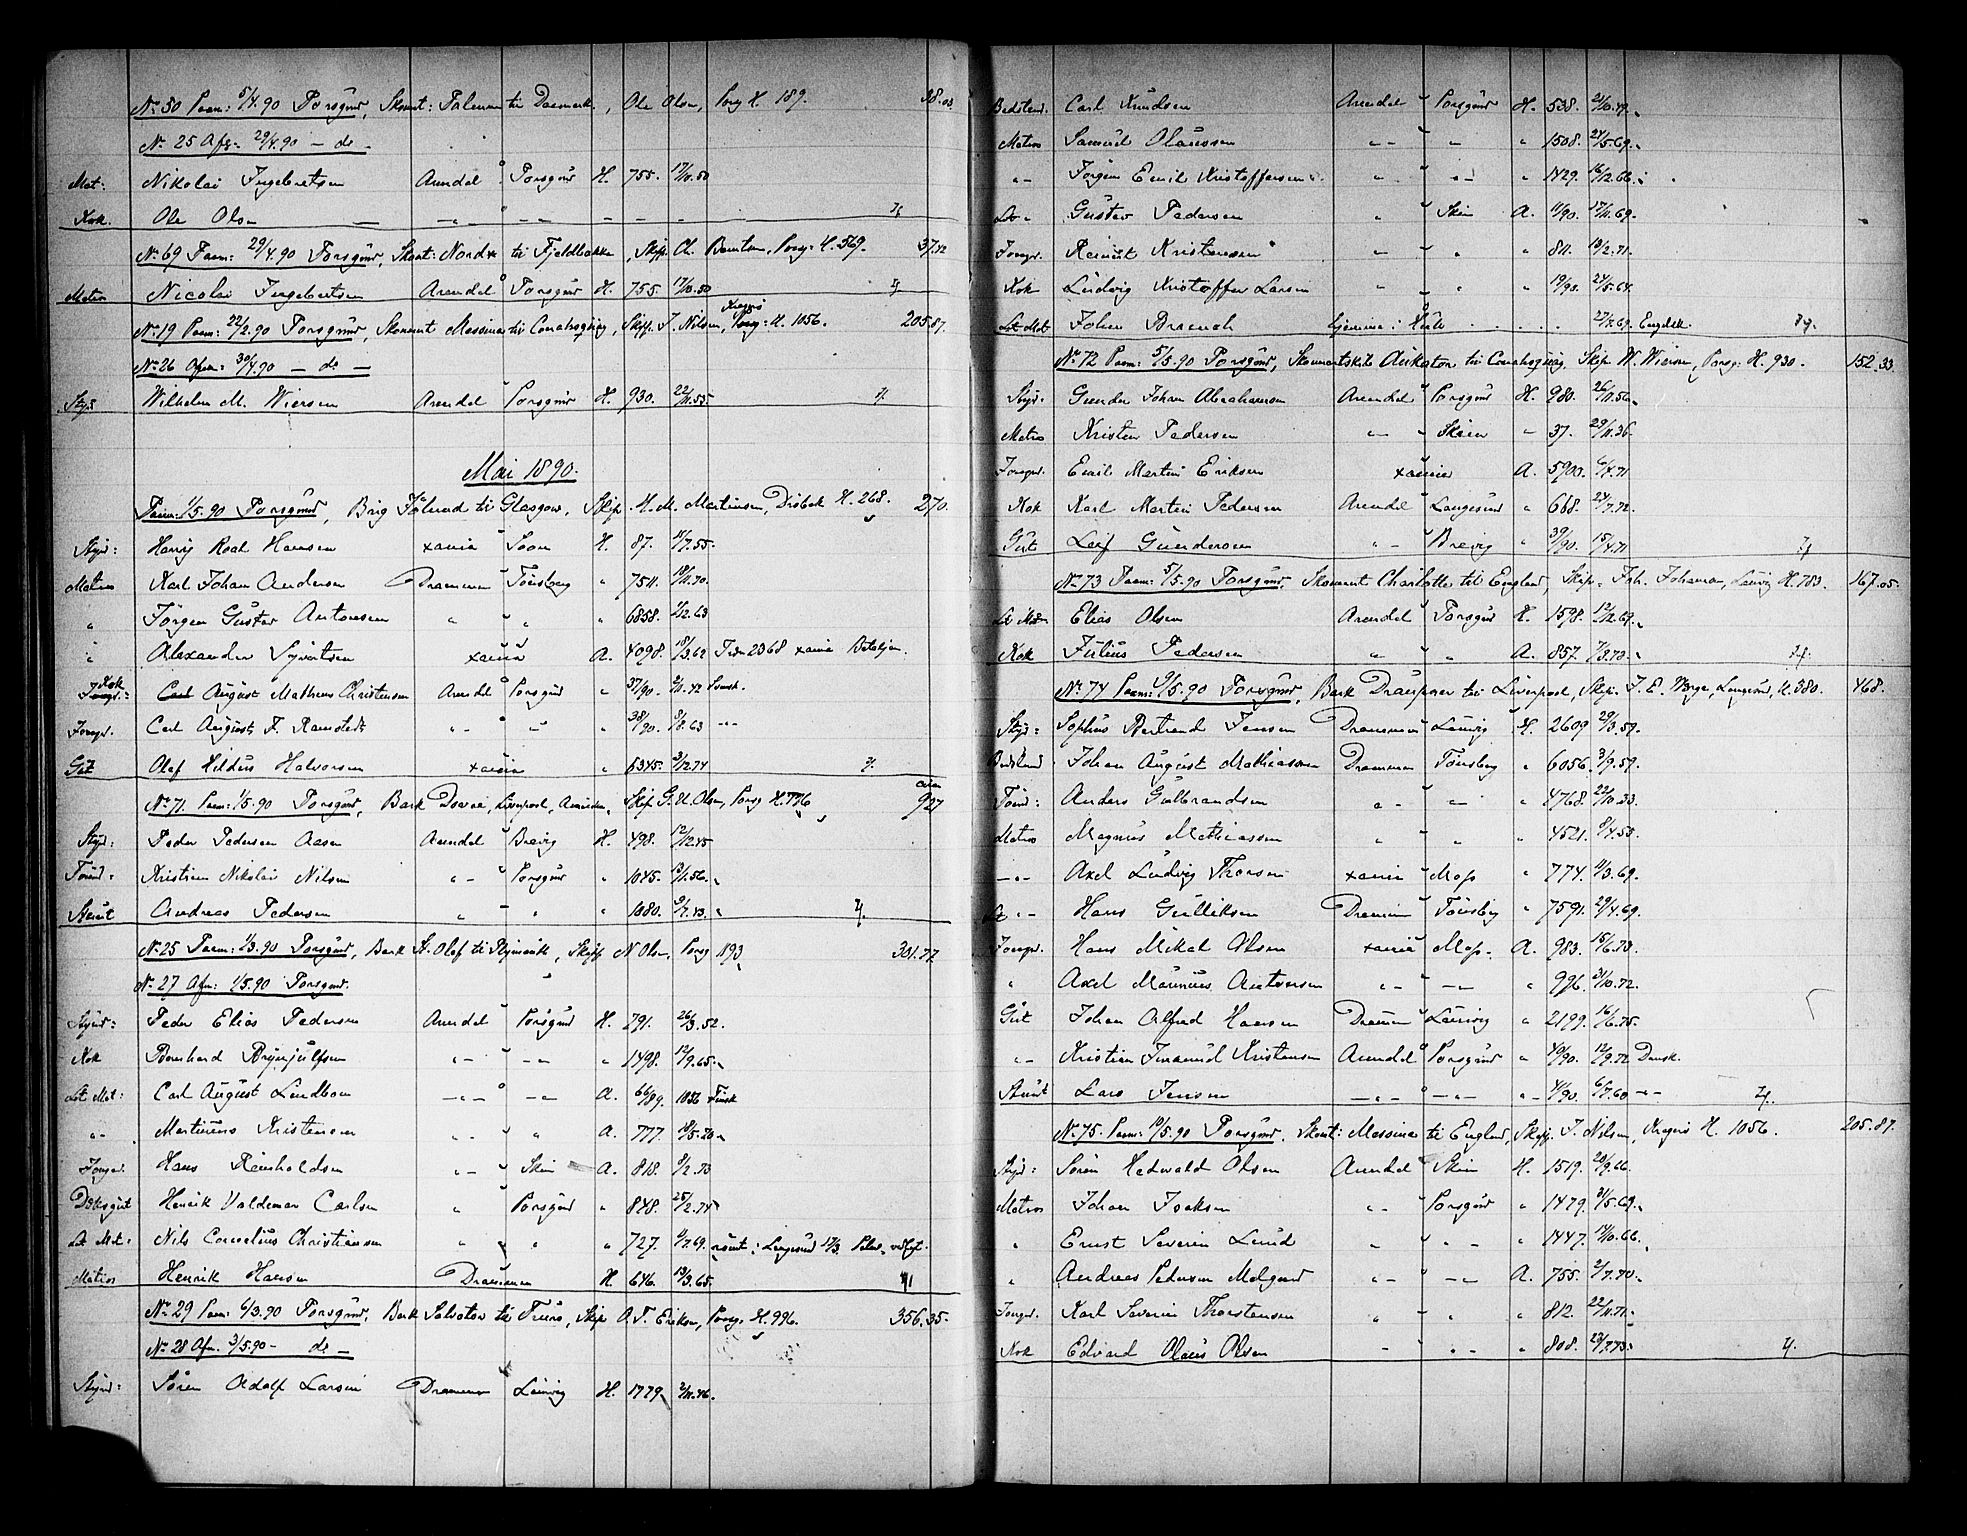 No 50 Paam: 5/4.90 Porsgrund, Skonnt: Palmen til Danmark, Ole Olsen, Porsg. H. 189. 38.03
No 25 Afm: 29/4.90 - do -
Mat: Nikolai Ingebretsen Arendal " Porsgrund H. 755. 17/10.50
Kok. Ole Olsen
No 69 Paam: 29/4.90 Porsgrund, Skonnt: Nord til Fjeldbakke, Skip. Porsg. H. 569. 37.12
Matros Nicolai Ingebretsen Arendal Porsgrund H. 755. 17/10.50
No 19 Paam: 22/2.90 Porsgrund, Skonnert Messina til Skipp. J. Nilsen, Kragerø H. 1056. 205.87.
No 26 Afm: 30/4.90 - do -
Styrd Wilhelm M. Wiersen Arendal " Porsgrund H. 930. 22/11.55.
Mai 1890.
Paam: 1/5.90 Porsgrund, Brig til Glasgow, Skip. H. M. Martinsen, Drøbak H. 268. 270.
Styrd: Harry Roal Hansen xania " Soon H. 87. 11/7.55.
Matros Karl Johan Andersen Drammen " Tønsberg " 7511. 19/11.70.
" Jørgen Gustav Antonsen " " " " 6858. 1/12.63
" Alexander Syvertsen xania A. 4098. 18/3.62 2368 xania Bataljon.
Kok August Mathias Christensen Arendal Porsgrund " 37/90. 9/11.42 Svensk.
Jungm. Carl August F. Ramstedt " - " - " 38/90. 8/8.63 - " -
Gut Olaf Hildus Halvorsen xania " 6345. 3/12.74
No 71. Paam: 1/5.90 Porsgrund, Bark Liverpool, Skip. G. H. Olsen, Porsg H. 776 927
Styrd: Peder Pedersen Aasen Arendal " Brevig H. 498. 12/12.45
Tømd. Kristian Nikolai Nilsen " - " Porsgrund " 1045. 13/1.56.
Stuut Andreas Pedersen " - " " 1080. 9/7.43.
No 25 Paam: 1/3.90 Porsgrund, Bark St. Olaf til Skip N Olsen, Porsg 893 301.77.
No 27 Afm: 1/5.90 Porsgrund.
Styrd: Peder Elias Pedersen Arendal " Porsgrund H. 791. 26/3.52.
Kok Bernhard Brynjulfsen " - " - " - " 1498. 12/9.65.
Let Mat: Carl August Lindbom - " - - " - A. 66/89. 1856 Finsk
" - Martinus Kristensen " - " " A. 777. 18/5.70
Jungm. Hans Reinholdsen " - " Skien A. 818. 8/2.73
Dæksgut Henrik Valdemar Carlsen " Porsgrund " 848. 25/2.74
Let Mat: Nils Cornelius Christiansen " " " " 727. 11/7.69. rømt i Langesund 17/3
Matros Henrik Hansen Drammen H. 646. 13/3.65.
No 29 Paam: 6/3.90 Porsgrund. Bark Salvator til Truro, Skip O. T. Eriksen, Porsg. H. 996. 356.35.
No 28 Afm. 3/5.90 - do -
Styrd: Søren Adolf Larsen Drammen " Laurvig H. 1779. 2/11.46.
Bedstmd. Carl Knudsen Arendal " Porsgrund H. 538. 21/10.49.
Matros Samuel Olaussen " - " " - " 1508. 24/5.69.
" - Jørgen Emil Kristoffersen " " " - " 1429. 16/12.66.
Let " Gustav Pedersen " " Skien A. 11/90. 17/11.69.
Jungm. Reinert Kristensen " " " " 811. 19/2.71.
Kok Ludvig Kristoffer Larsen " " " " 19/90. 24/5.64.
Let Mat Johan Branch hjemme i Hull 27/7.69. Engelsk.
No 72 Paam: 5/5.90 Porsgrund, til Skip. W. Wiersen, Porsg. H. 930. 152.33.
Styrd. Gunder Johan Abrahamsen Arendal " Porsgrund H. 980. 26/11.56.
Matros Kristen Pedersen " - " Skien " 37. 29/11.36.
Jungm. Emil Martin Eriksen xania A. 5900. 6/4.71
Kok Karl Martin Pedersen Arendal " Langesund " 668. 24/7.72.
Gut Leif Gundersen " - " Brevig " 39/90. 15/4.71
No 73 Paam: 5/5.90 Porsgrund. Skonnert Charlotte til England, Skip. Joh. Johansen, Laurvig H. 783. 167.05.
Let Mat Elias Olsen Arendal " Porsgrund H. 1598. 12/12.69.
Kok Julius Pedersen " " " A. 857. 7/3.73.
No 74 Paam: 9/5.90 Porsgrund, Bark Draupner til Liverpool, Skip. J. E. Langesund, H. 380. 468.
Styrd: Sophus Bertrand Jensen Drammen " Laurvig H. 2609 29/3.59.
Bedstmd Johan August Mathiassen Drammen " Tønsberg " 6056. 3/9.59.
Tømd: Anders Gulbrandsen " - " " - " 4768. 22/10.33.
Matros Magnus Mathiassen " " " " 4521. 8/4.53.
- " - Axel Ludvig Thorsen xania " Moss " 774. 11/3.69.
Let " - Hans Gulliksen Drammen " Tønsberg " 7591. 29/4.69.
Jungm. Hans Mikal Olsen xania " Moss. A. 983. 15/6.73.
" Axel Marinius Antonsen " - " - " - " 996. 31/10.72.
Gut Johan Alfred Hansen Drammen " Laurvig " 2199. 16/6.75.
" - Kristian Imanuel Kristensen Arendal " Porsgrund " 40/90. 12/9.72 Dansk.
Stuut Lars Jensen - " - " - " - " - 41/90. 6/7.60 - " -
No 75. Paam: 10/5.90 Porsgrund. Skonnt: Messina til England, Skip. J. Nilsen, Kragerø H. 1056. 205.87.
Styrd: Søren Hedevald Olsen Arendal " Skien H. 1519. 28/9.66.
Matros Johan Isaksen " - " Porsgrund " 1479. 31/5.69.
" Ernst Severin Lund " " " - " 1447. 14/10.66.
" Andreas Pedersen Melgaard " - " - " - A. 755. 2/7.70.
Jungm. Karl Severin Thorstensen " " " " 812. 22/11.71.
Kok Edvard Olaus Olsen - " " - " 808. 23/7.73.